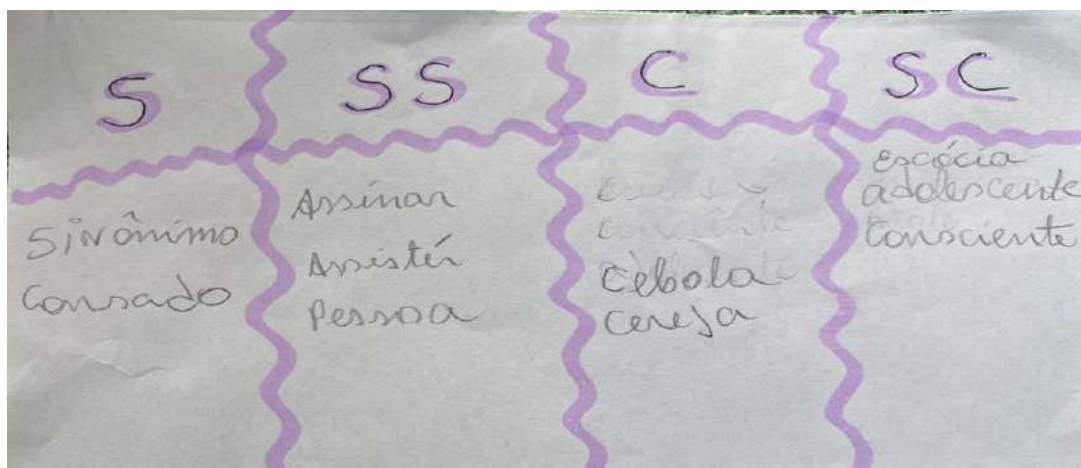 S
SS
C
SC
Sinônimo
Cansado
Assinar
Assistir
Pessoa
Cebola
Cereja
Escócia
adolescente
Consciente